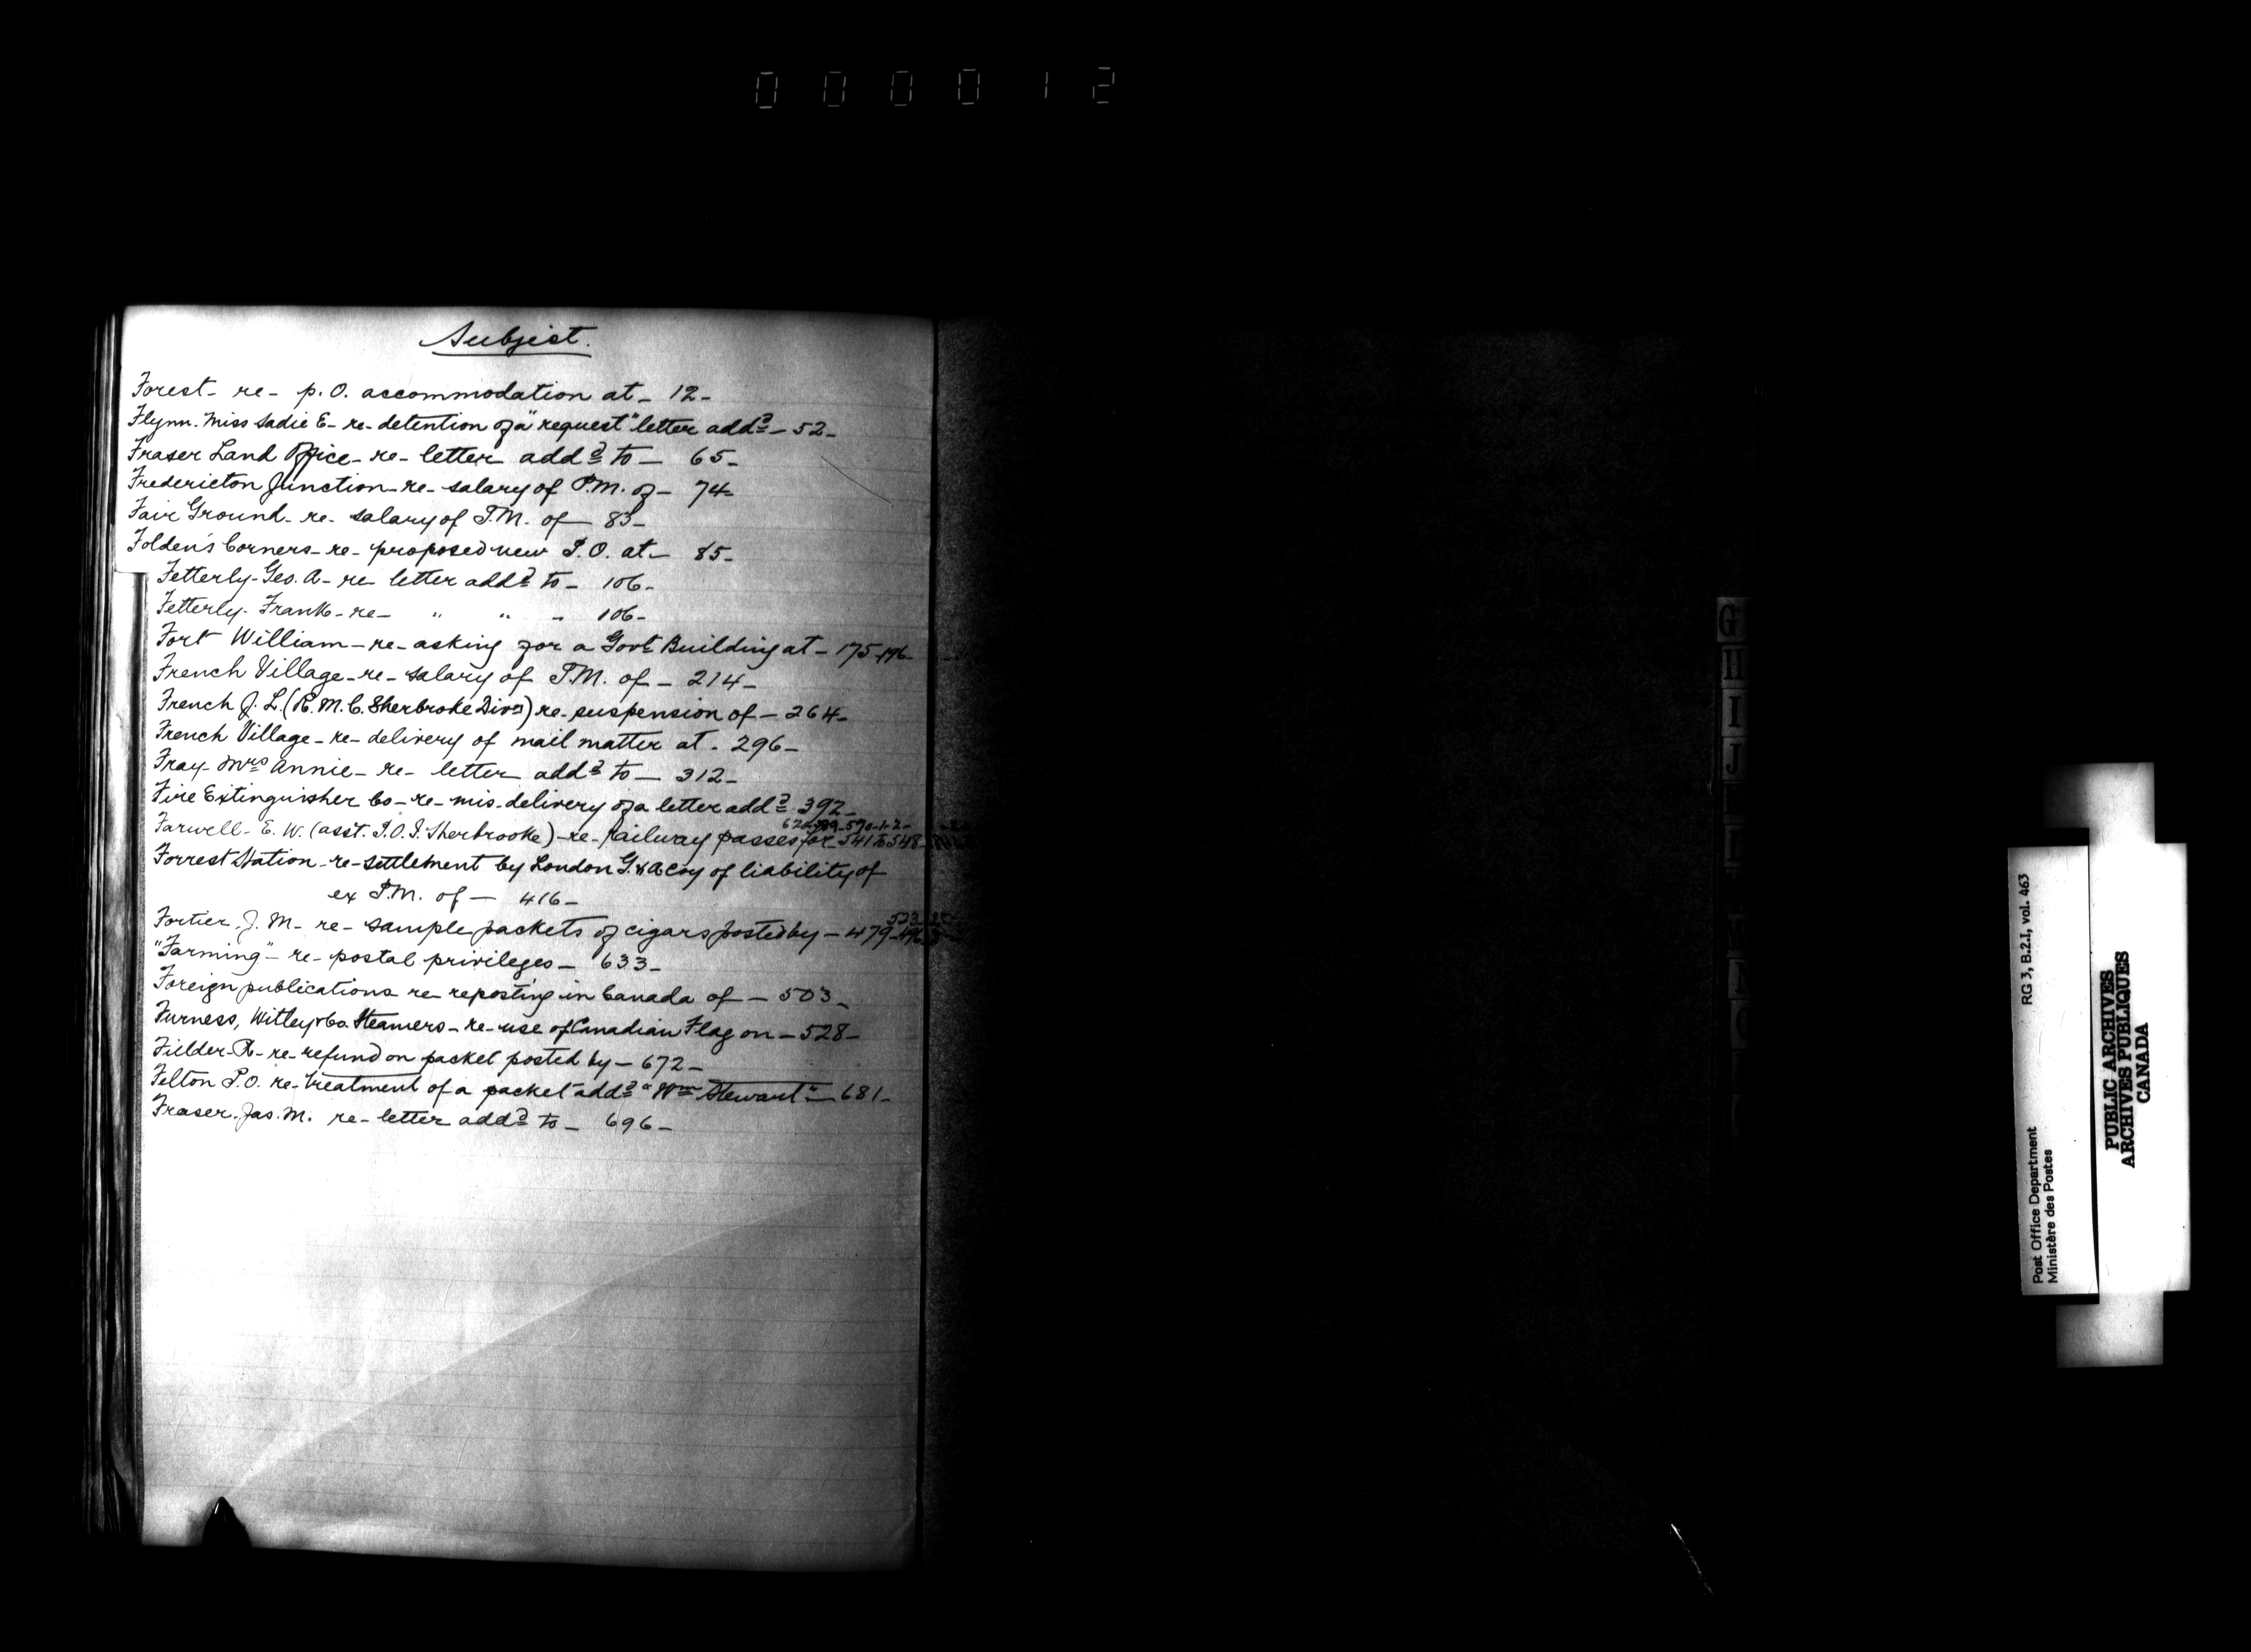 000012
Subject.
Forest - re - p.O. accommodation at - 12 -
Flynn. Miss Sadie E - re - detention of a "request" letter add^d - 52 -
Fraser Land Office - re - letter add^d to - 65 -
Fredericton Junction - re - salary of P.M. of - 74 -
Fair Ground - re - salary of P.M. of - 83 -
Folden's Corners - re - proposed new P.O. at - 85 -
Fetterly - Geo. A - re letter add^d to - 106 -
Fetterly - Frank - re - " " " 106 -
Fort William - re - asking for a Gov^t Building at - 175 - 196 -
French Village - re - salary of P.M. of - 214 -
French J. L. (R.M.C. Sherbroke Div^n) re - suspension of - 264 -
French Village - re - delivery of mail matter at - 296 -
Fray - Mrs Annie - re - letter add^d to - 312 -
Fire Extinguisher Co - re - mis-delivery of a letter add^d 392 -
Farwell - E. W. (asst. P.O.I. Sherbrooke) - re - railway passes for - 541 to 548 -
Forrest Station - re - settlement by London G. & A coy of liability of
ex P.M. of - 416 -
Fortier. J. M - re - sample packets of cigars posted by - 479 - 496
523
"Farming" - re - postal privileges - 633 -
Foreign publications re reposting in Canada of - 503 -
Furness, Witley & Co. Steamers - re - use of Canadian Flag on - 528 -
Fielder - R - re - refund on packet posted by - 672 -
Felton P.O. re - treatment of a packet add^d "Wm Stewart" - 681 -
Fraser. Jas. M. re - letter add^d to - 696 -
G
H
I
J
Post Office Department
Ministère des Postes
RG 3, B.2.I, vol. 463
PUBLIC ARCHIVES
ARCHIVES PUBLIQUES
CANADA